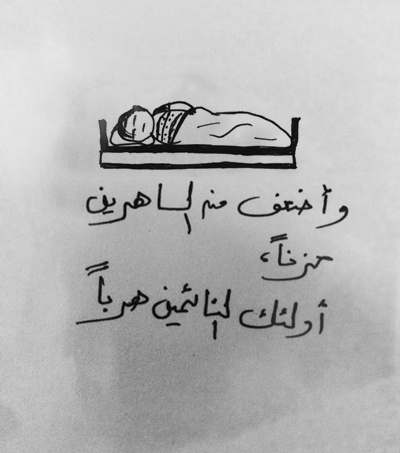 وأضعف من الساهرين
حزناً،
أولئك النائمين هرباً